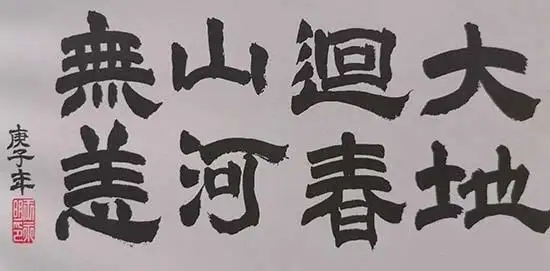 大地
迴春
山河
無恙
庚子年